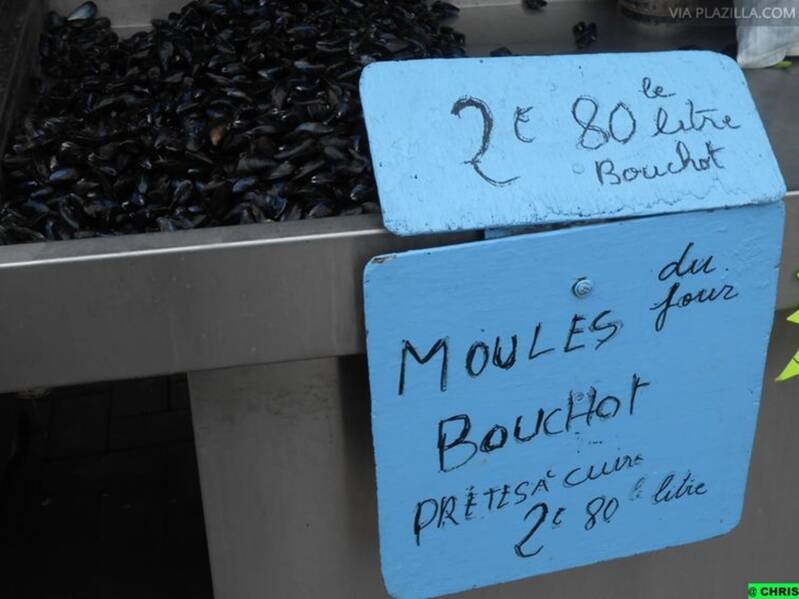 VIA PLAZILLA.COM
2€ 80 le litre
Bouchot
du jour
MOULES
BOUCHOT
PRÊTES À CUIRE
2€ 80 le litre
@ CHRIS